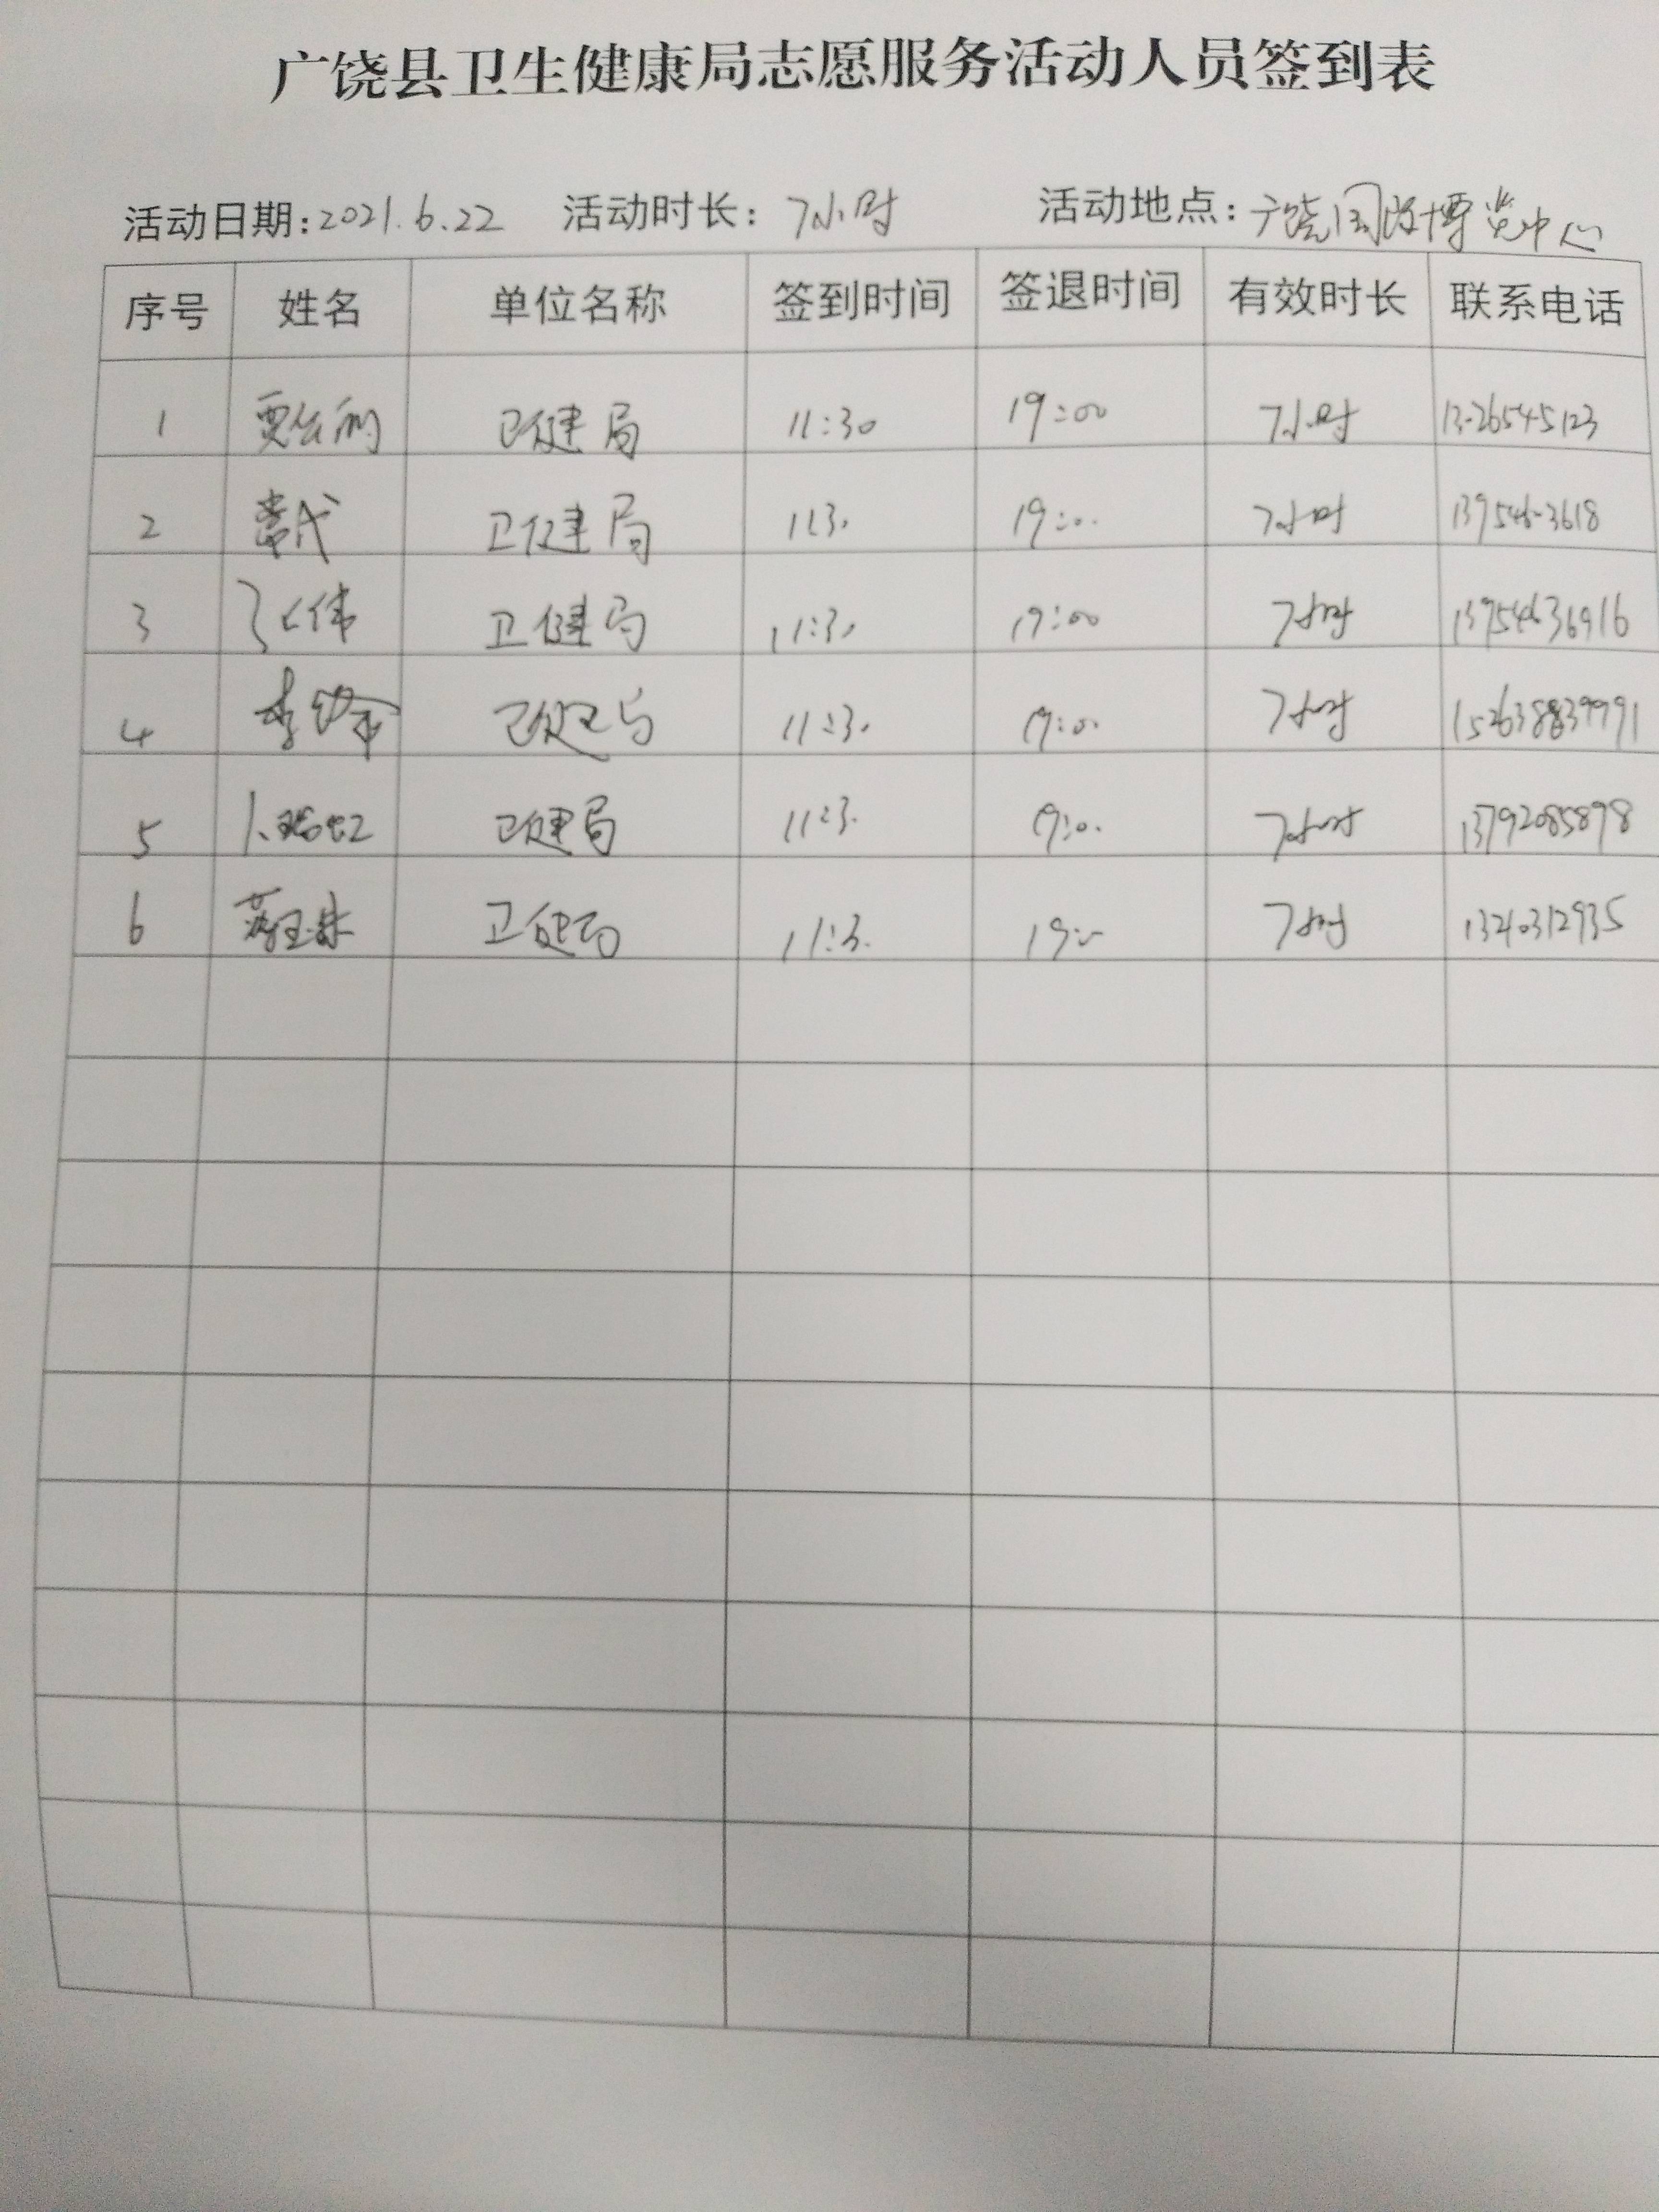 广饶县卫生健康局志愿服务活动人员签到表
活动日期:2021.6.22 活动时长:7小时 活动地点:广饶国际博览中心
序号 姓名 单位名称 签到时间 签退时间 有效时长 联系电话
1 卫健局 11:30 19:00 7小时
2 卫健局 113. 19:0. 7小时
3 张伟 卫健局 11:30 19:00 7小时 13954636916
4 李 卫健局 11:30 19:00 7小时
5 卫健局 11:3. 19:0. 7小时 13792085898
6 卫健局 11:3. 7小时